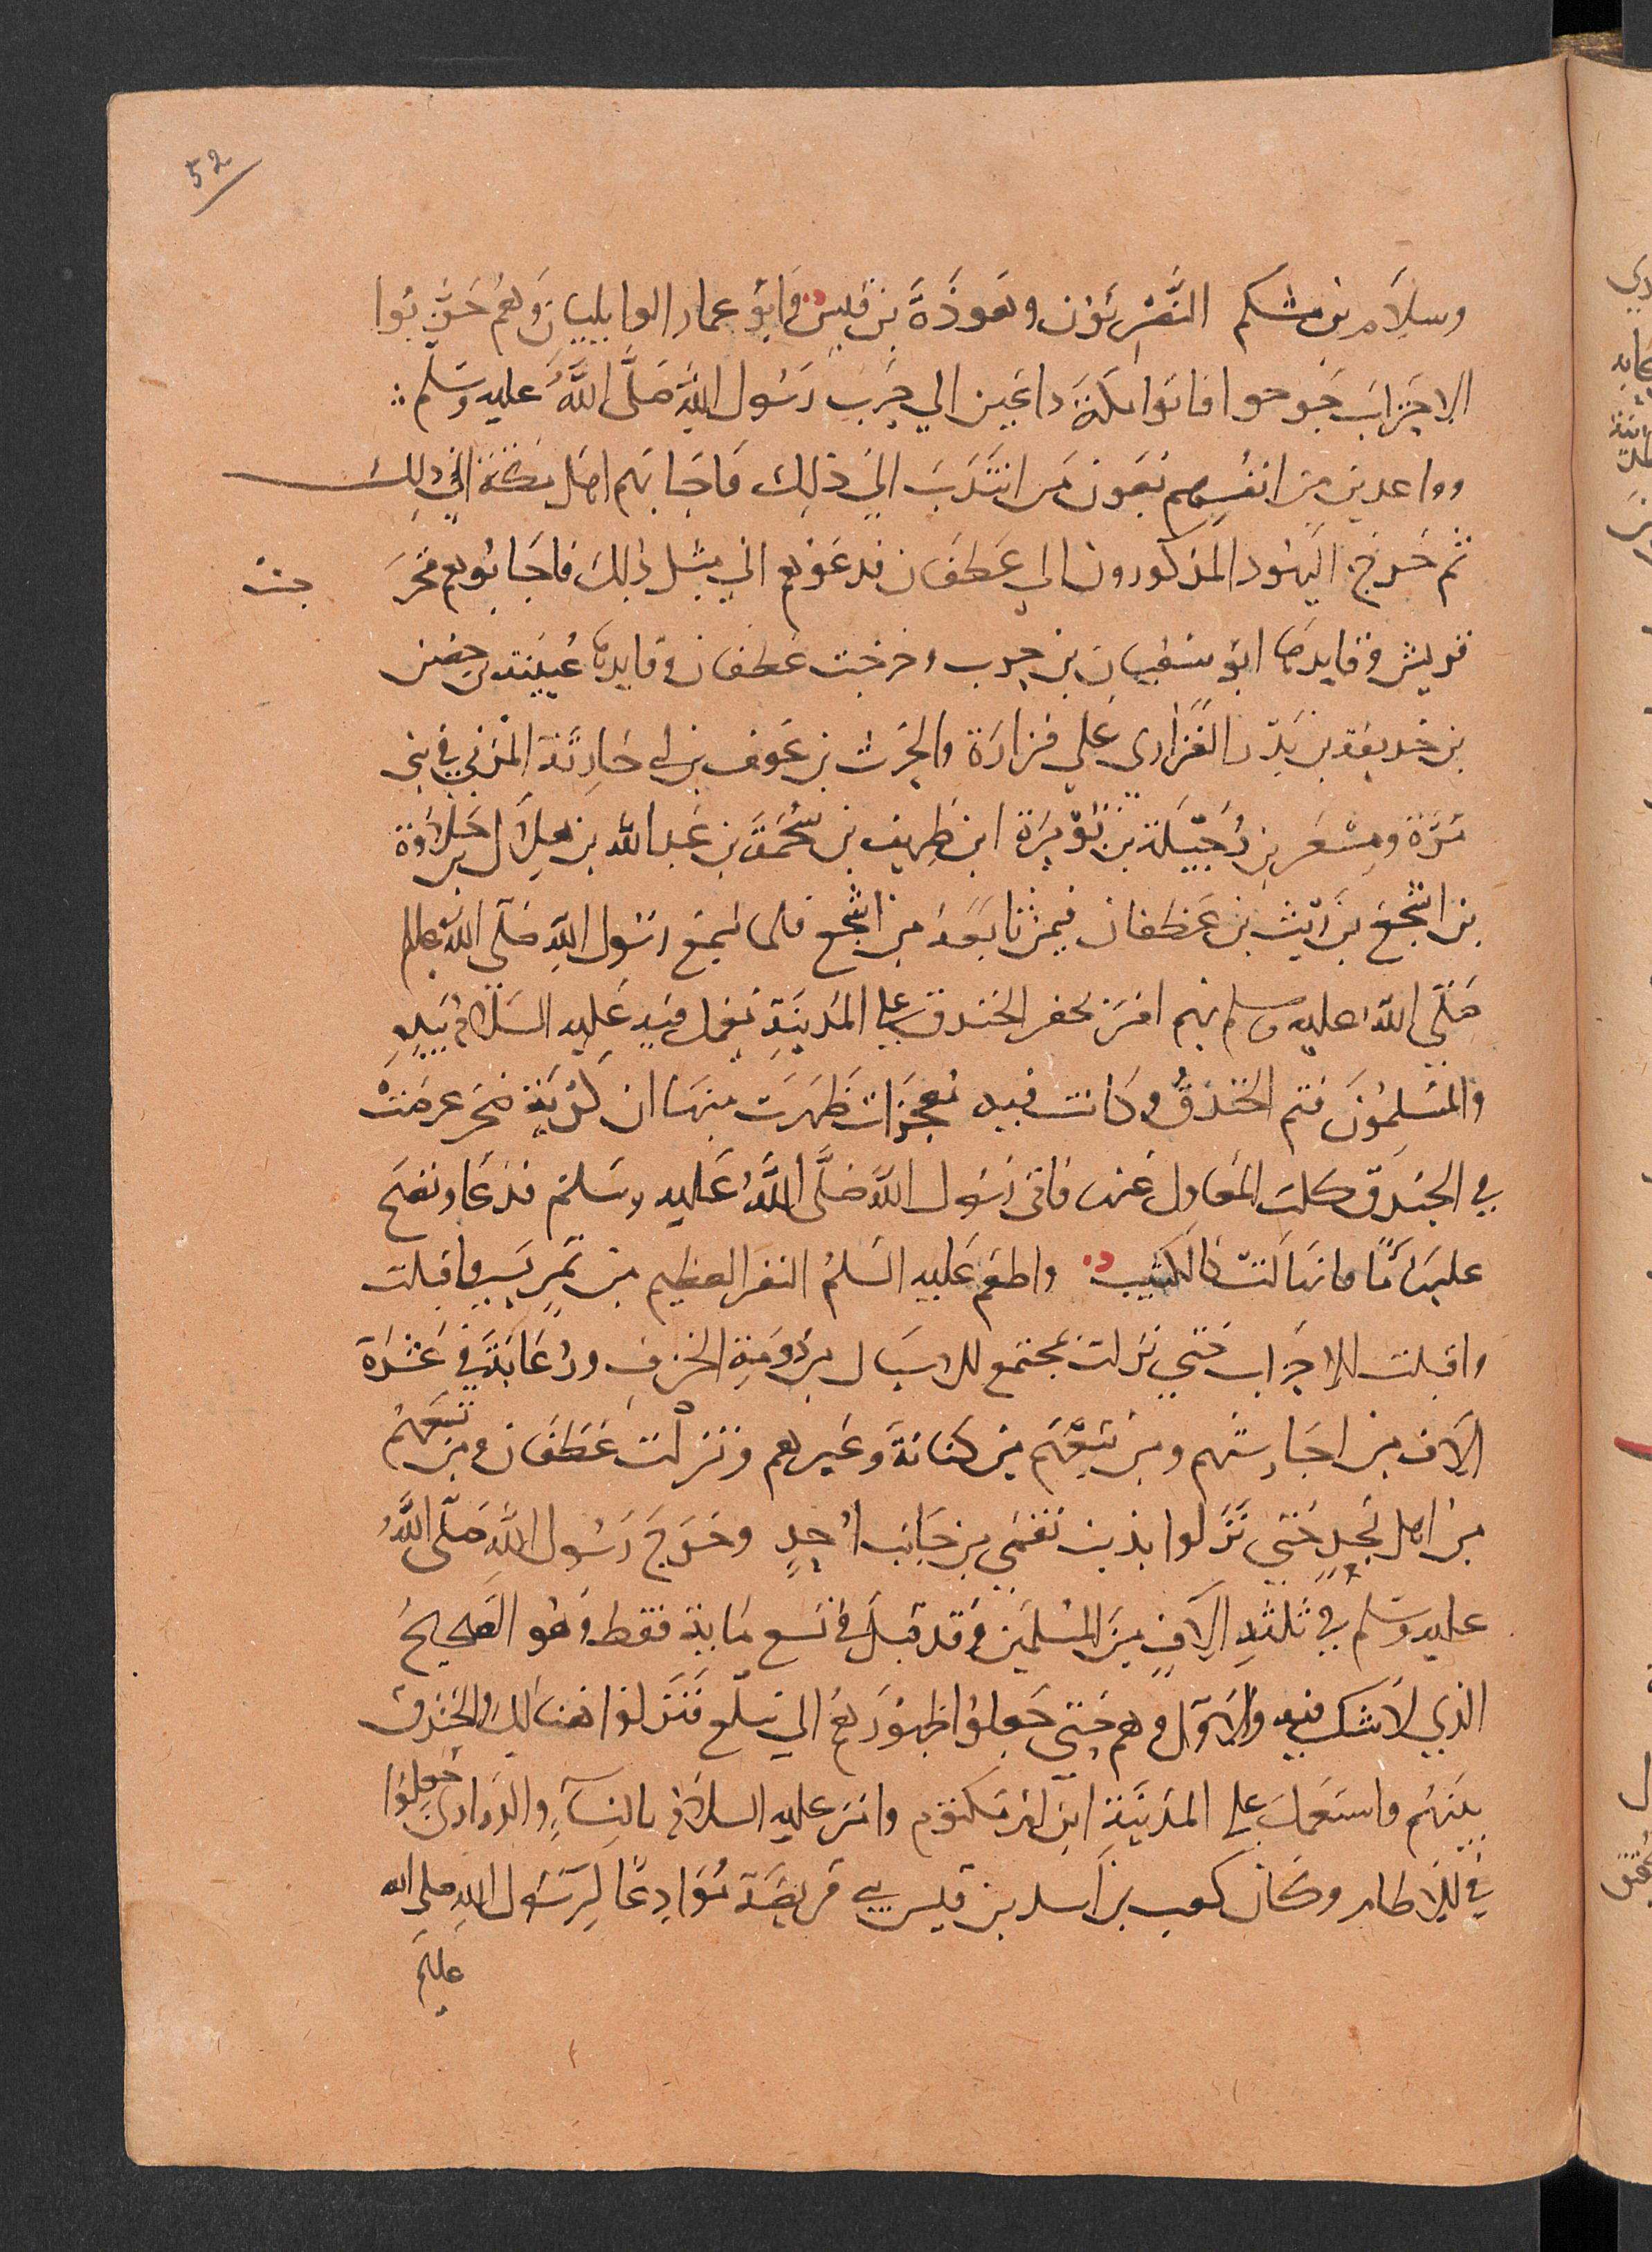 52
وسلام بن مشكم النَّضْرِيُّون وهَوذَةَ بن قيس وأبو عمار الوايليان وَهُم حَزَّبُوا
الاحزابَ خرجوا فاتوا مكة داعين الي حَرْبِ رَسُول اللهِ صَلَّى اللَّهُ عليه وسَلم
وواعدين من انفسهم بعون من انتَدَبَ الي ذلِك فَاجَابهم اهل مكة الي ذلك
ثم خَرج اليهُود المذكورون الي غَطفَان فدعَوْهم الي مِثل ذلك فاجَابُوهم فخرَ جتْ
قريش وقايدها ابو سفيان بن حرب وخرجت غطفان وقايدها عُيينة بن حِصن
بن حذيفة بن بَدْر الفَزَاري علي فزارَة والحرث بن عَوف بن ابي حَارِثَة المُرّي في بني
مُرَّة ومِسْعَر بن رُخَيلَة بن نُوَيرَة ابن طريف بن سُحْمَة بن عَبد الله بن هِلَال بن خلاوة
بن اشْجَعَ بن رَيث بن غطفان فيمن تَابَعَهُ من اشْجع فلما سَمعَ رَسُول اللهِ صَلّى الله عليه
صَلّى اللهُ عليه وسلم بهم امَرَ بحفر الخندق علي المدِينَةِ فعمل فيهِ عَليه السلام بيدِهِ
والمسْلِمُونَ فتم الخَنْدقُ وكانت فيه مُعجزات ظَهرَت منها ان كُدْية صَخر عرضَتْ
في الخندق كلت المَعَاول عنها فاتي رَسُول اللهِ صَلَّى اللَّهُ عَليه وسَلم فدَعَا ونضح
عليها مًا فانهَالَتْ كالكثيب واطعَم عَليه السَلمُ النفر العظيم من تمرٍ يسيرٍ واقبلت
واقبلت الاحزاب حَتي نزلت بمجتمع الاسيَال من رُومَةِ الجُرف وزُغَابَةَ في عَشَرَة
الَاف من احَابيشهم ومن تبعَهم من كنانةَ وغَيرهم ونزلت غَطَفَان ومن تبعَهُم
من اهل نَجدٍ حَتي نَزَلوا بذنب نَقمَي من جَانب أُحدٍ وخَرجَ رَسُول اللهِ صَلّى اللَّهُ
عليه وسَلم في ثلثةِ الَافٍ من المُسْلمين وقد قيلَ في تسع مَاية فقط وهُو الصَحيحُ
الذي لَا شك فيه والاول وهم حَتي جَعلُوا ظهُورَهم الي سَلعٍ فَنَزلُوا هُنَالِكَ والخَندق
بينهُم واستعمل علي المَدينَةِ ابن ام مَكتوم وامَر عليه السلام بالنسآءِ والذراري فجُعِلُوا
في الاطام وكَان كعب بن اسد بن قيس قريضَة مُوَادِعًا لرسُول الله صلي الله
عليه